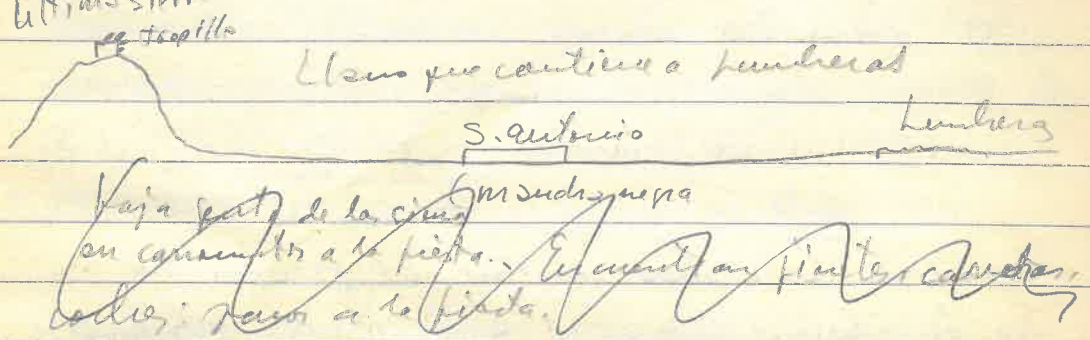 tropillo
Llano que contiene a Lumbreras
S. Antonio
Lumbreras
mandra negra
Vaja gente de la cima
en carromatos a la fiesta. Encuentran jinetes, carretas,
coches: paros a la fiesta.